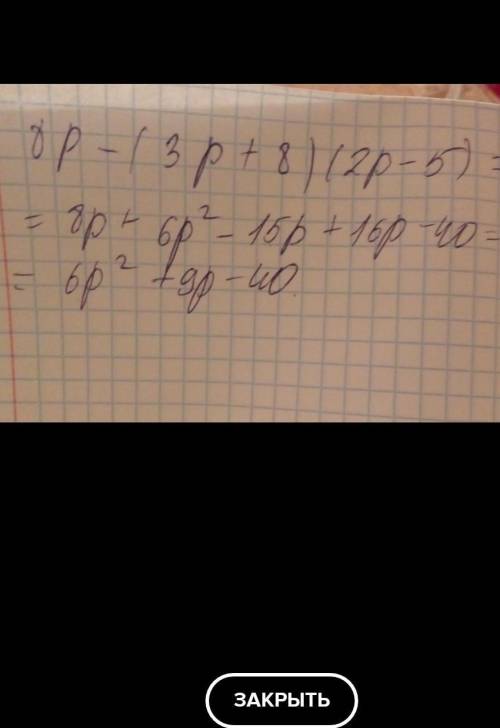 8p - (3p + 8)(2p - 5) =
= 8p + 6p² - 15p + 16p - 40 =
= 6p² + 9p - 40.
ЗАКРЫТЬ